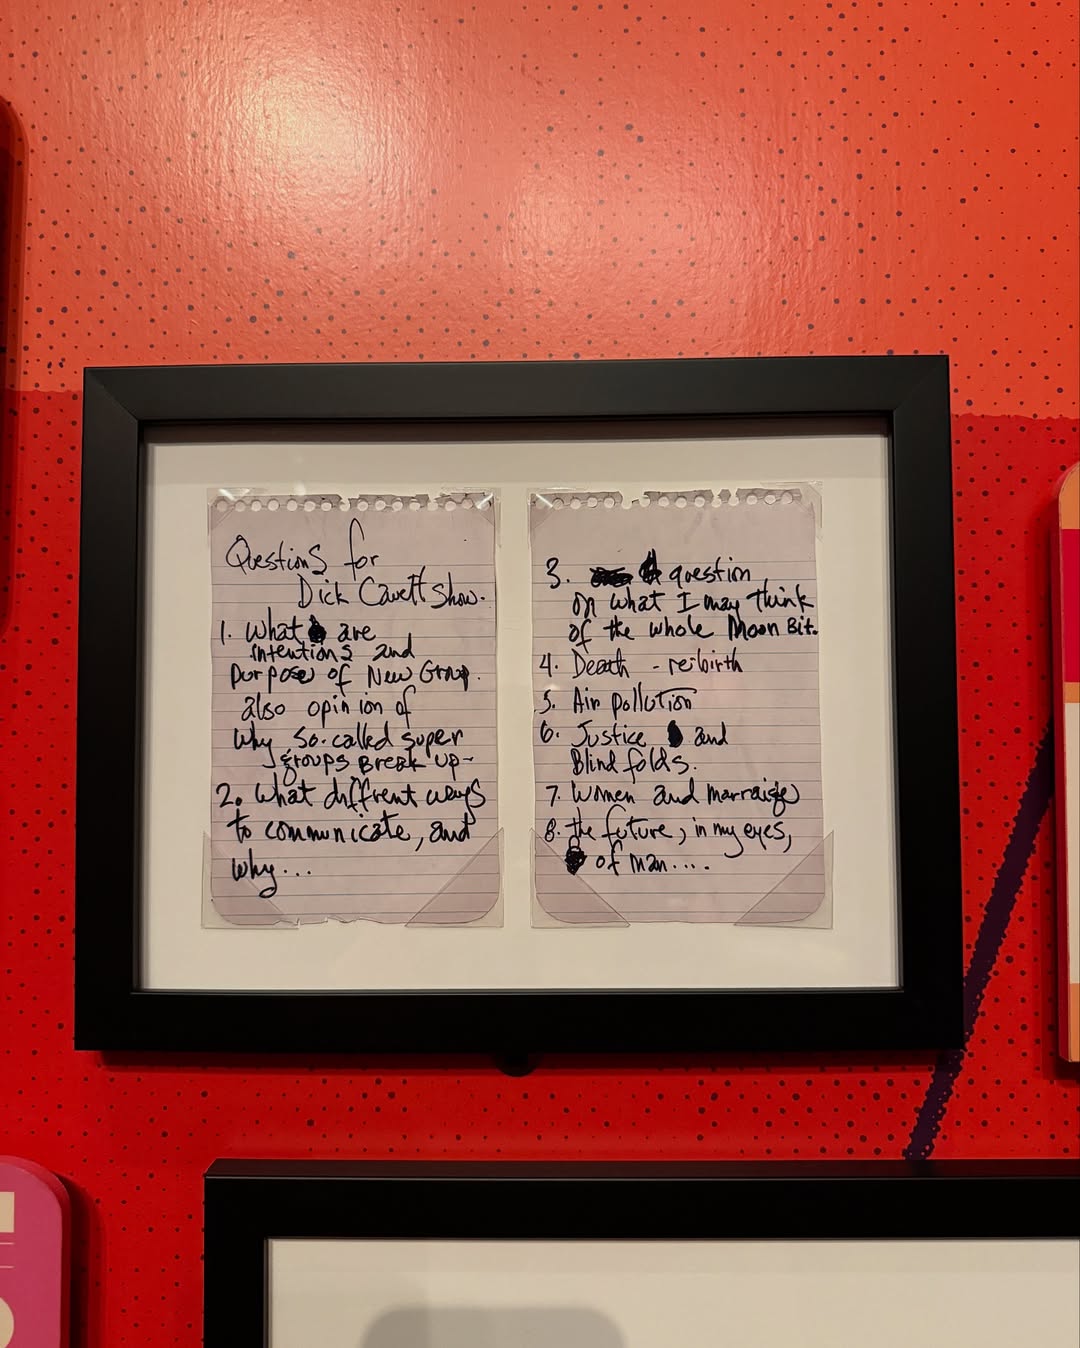 Questions for
Dick Cavett Show.
1. What are
intentions and
purpose of New Group.
also opinion of
why so-called super
groups Break up-
2. What diffrent ways
to communicate, and
why...
3. question
on what I may think
of the whole Moon Bit.
4. Death - reibirth
5. Air pollution
6. Justice and
Blind folds.
7. Women and marraige
8. the future, in my eyes,
of man....